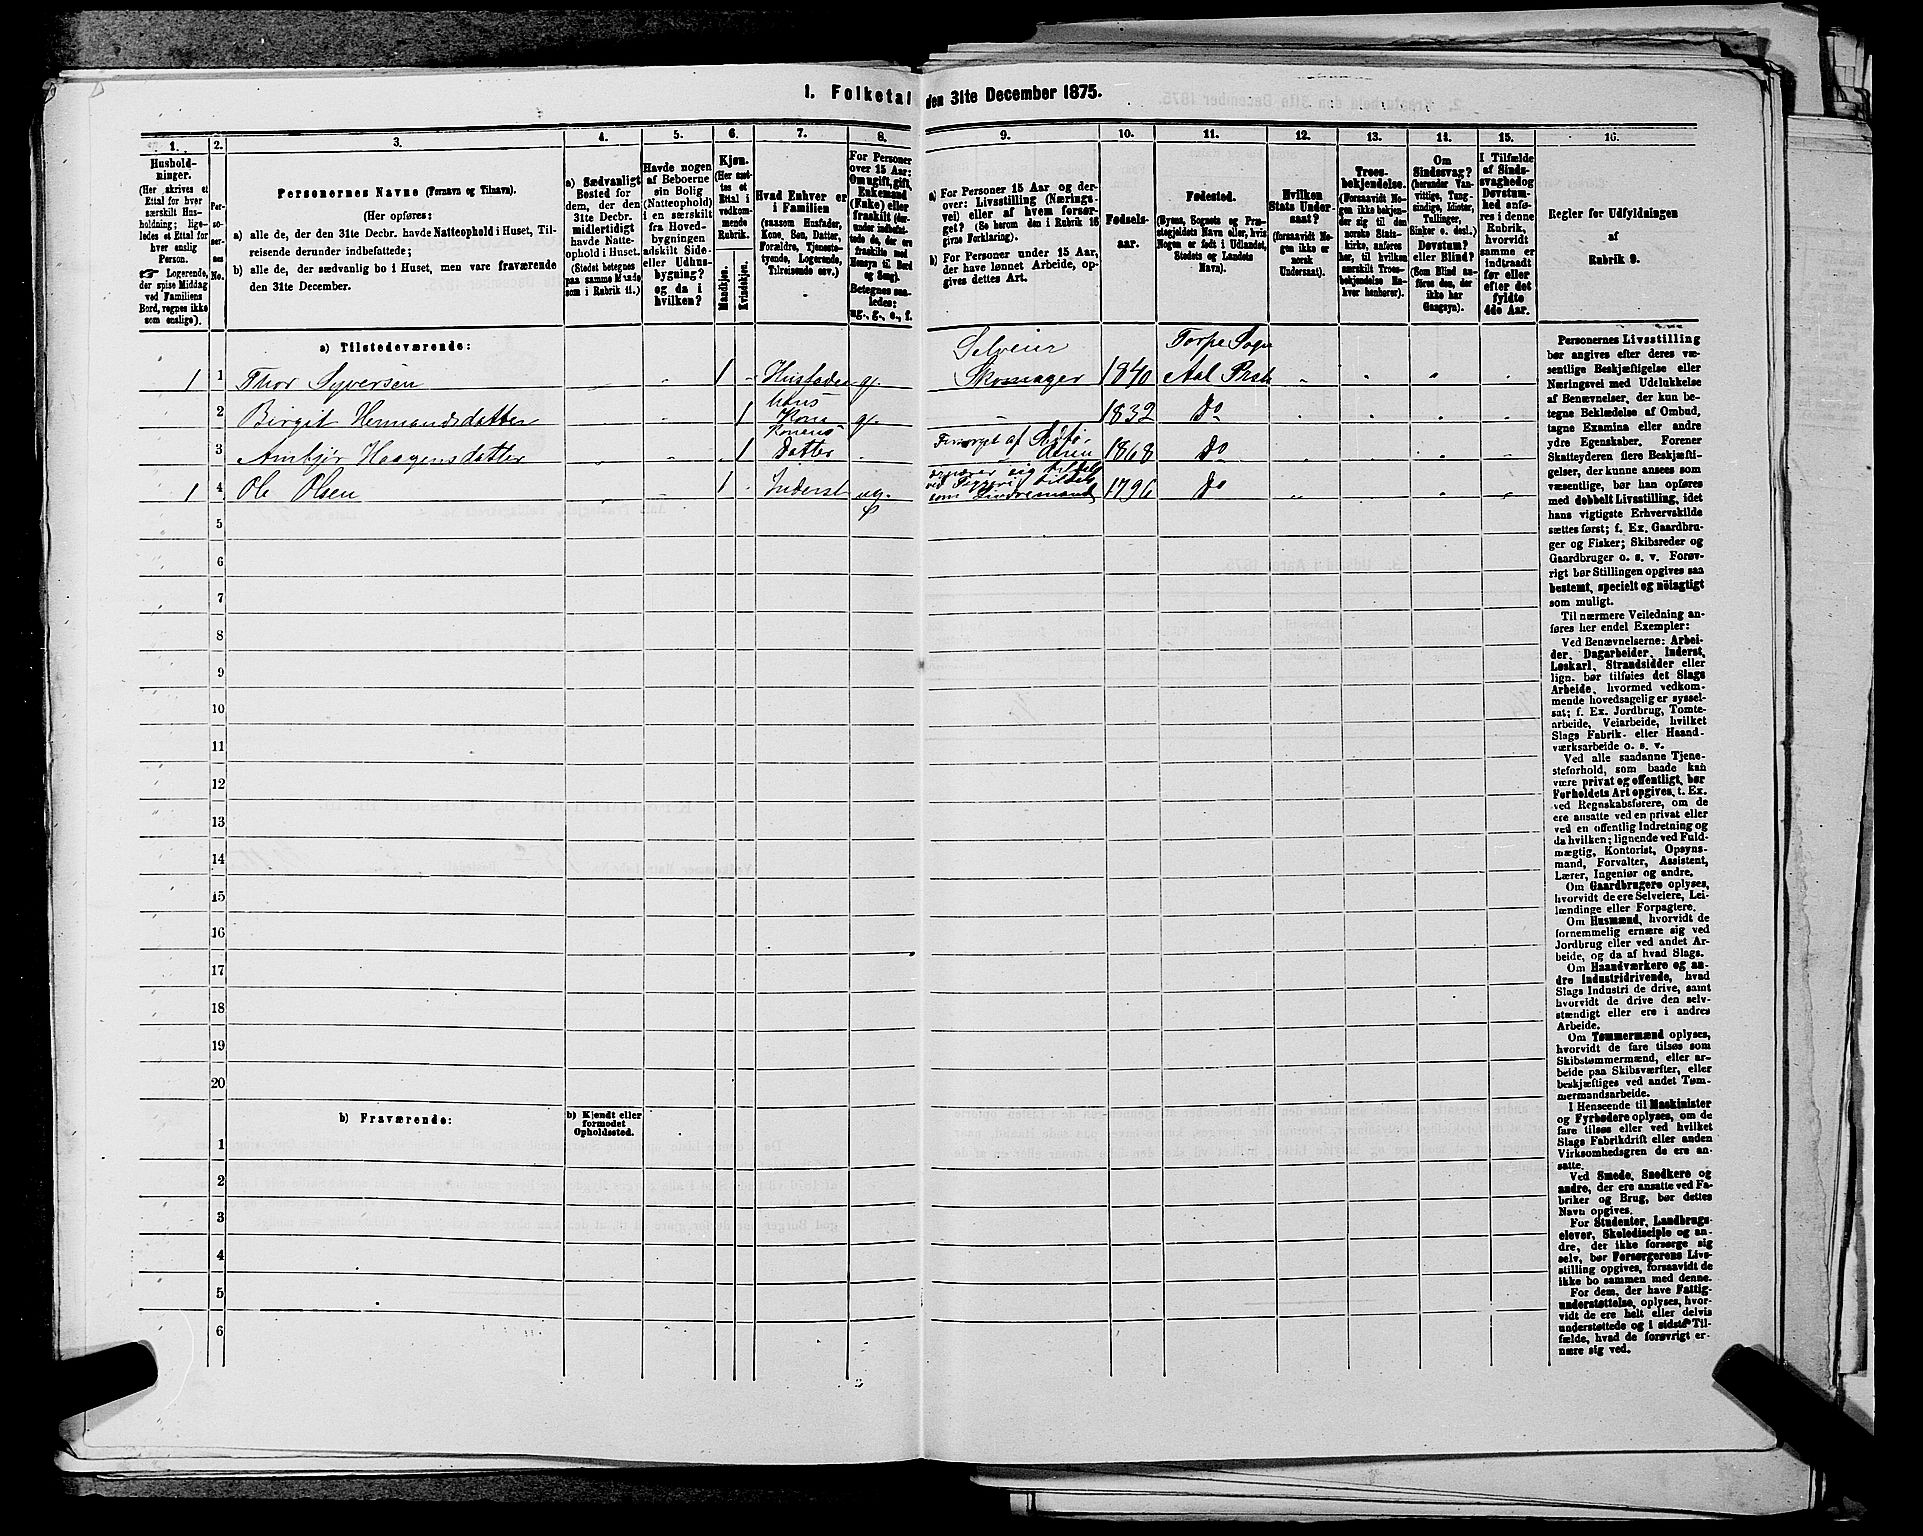 1. Folketal den 31te December 1875.
1.
Hushold-
ninger.
(Her skrives et
Ettal for hver
særskilt Hus-
holdning; lige-
ledes et Ettal for
hver enslig
Person.
☞ Logerende,
der spise Middag
ved Familiens
Bord, regnes ikke
som enslige).
2.
Per-
so-
ner-
nes
No.
3.
Personernes Navne (Fornavn og Tilnavn).
(Her opføres:
a) alle de, der den 31te Decbr. havde Natteophold i Huset, Til-
reisende derunder indbefattede;
b) alle de, der sædvanlig bo i Huset, men vare fraværende
den 31te December.
4.
a) Sædvanligt
Bosted for
dem, der den
31te Decbr.
midlertidigt
havde Natte-
ophold i Huset.
(Stedet betegnes
paa samme Maade
som i Rubrik 11.)
5.
Havde nogen
af Beboerne
sin Bolig
(Natteophold)
i en særskilt
fra Hoved-
bygningen
adskilt Side-
eller Udhus-
bygning?
og da i
hvilken?
6.
Kjøn.
(Her sæt-
tes et
Ettal i
vedkom-
mende
Rubrik.
Mandkjøn.
Kvindekjøn.
7.
Hvad Enhver er
i Familien
(saasom Husfader,
Kone, Søn, Datter,
Forældre, Tjeneste-
tyende, Logerende,
Tilreisende osv.)
8.
For Personer
over 15 Aar:
Om ugift, gift,
Enkemand
(Enke) eller
fraskilt (der-
under indbefat-
tede de, der ere
fraskilte med
Hensyn til Bord
og Seng).
Betegnes saa-
ledes:
ug., g., e., f.
9.
a) For Personer 15 Aar og der-
over: Livsstilling (Nærings-
vei) eller af hvem forsør-
get? (Se herom den i Rubrik 16
givne Forklaring).
b) For Personer under 15 Aar,
der have lønnet Arbeide, op-
gives dettes Art.
10.
Fødsels-
aar.
11.
Fødested.
(Byens, Sognets og Præ-
stegjeldets Navn eller, hvis
Nogen er født i Udlandet,
Stedets og Landets
Navn).
12.
Hvilken
Stats Under-
saat?
(forsaavidt No-
gen ikke er
norsk
Undersaat).
13.
Troes-
bekjendelse.
(Forsaavidt No-
gen ikke bekjen-
der sig til den
norske Stats-
kirke, anføres
her, til hvilken
særskilt Troes-
bekjendelse En-
hver henhører).
14.
Om
Sindssvag?
(herunder Van-
vittige, Tung-
sindige, Idioter,
Tullinger,
Sinker o. desl.)
Døvstum?
eller Blind?
(Som Blind an-
føres den, der
ikke har
Gangsyn).
15.
I Tilfælde
af Sinds-
svaghed og
Døvstum-
hed anfø-
res i denne
Rubrik,
hvorvidt
samme er
indtraadt
før eller
efter det
fyldte
4de Aar.
16.
Regler for Udfyldningen
af
Rubrik 9.
a) Tilstedeværende:
Selveier Torpe Sogn
1 1 Thor Syversen 1 Husfader g. Skomager 1840 Aal Prst
2 Birgit Hermandsdatter 1 hans Kone g. 1832 Do
3 Ambjør Haagensdatter 1 Konens Datter Forsørget af Stiffa- deren 1868 Do
1 4 Ole Olsen 1 Inderst ug. ernærer sig tildels ved tildels som 1796 Do
5
6
7
8
9
10
11
12
13
14
15
16
17
18
19
20
b) Fraværende:
b) Kjendt eller
formodet
Opholdssted.
1
2
3
4
5
6
Personernes Livsstilling
bør angives efter deres væ-
sentlige Beskjæftigelse eller
Næringsvei med Udelukkelse
af Benævnelser, der kun be-
tegne Beklædelse af Ombud,
tagne Examina eller andre
ydre Egenskaber. Forener
Skatteyderen flere Beskjæfti-
gelser, der kunne ansees som
væsentlige, bør han opføres
med dobbelt Livsstilling, idet
hans vigtigste Erhvervskilde
sættes først; f. Ex. Gaardbru-
ger og Fisker; Skibsreder og
Gaardbruger o. s. v. Forøv-
rigt bør Stillingen opgives saa
bestemt, specielt og nöiagtigt
som muligt.
Til nærmere Veiledning an-
føres her endel Exempler:
Ved Benævnelserne: Arbei-
der, Dagarbeider, Inderst,
Løskarl, Strandsidder eller
lign. bør tilføies det Slags
Arbeide, hvormed vedkom-
mende hovedsagelig er syssel-
sat; f. Ex. Jordbrug, Tomte-
arbeide, Veiarbeide, hvilket
Slags Fabrik- eller Haand-
værksarbeide o. s. v.
Ved alle saadanne Tjene-
steforhold, som baade kan
være privat og offentligt, bør
Forholdets Art opgives, t. Ex.
ved Regnskabsførere, om de
ere ansatte ved en privat eller
ved en offentlig Indretning og
da hvilken; lignende ved Fuld-
mægtig, Kontorist, Opsyns-
mand, Forvalter, Assistent,
Lærer, Ingeniør og andre.
Om Gaardbrugere oplyses,
hvorvidt de ere Selveiere, Lei-
lændinge eller Forpagtere.
Om Husmænd, hvorvidt de
fornemmelig ernære sig ved
Jordbrug eller ved andet Ar-
beide, og da af hvad Slags.
Om Haandværkere og an-
dre Industridrivende, hvad
Slags Industri de drive, samt
hvorvidt de drive den selv-
stændigt eller ere i andres
Arbeide.
Om Tømmermænd oplyses,
hvorvidt de fare tilsøs som
Skibstømmermænd, eller ar-
beide paa Skibsværfter, eller
beskjæftiges ved andet Tøm-
mermandsarbeide.
I Henseende til Maskinister
og Fyrbødere oplyses, om de
fare tilsøs eller ved hvilket
Slags Fabrikdrift eller anden
Virksomhedsgren de ere an-
satte.
Ved Smede, Snedkere og
andre, der ere ansatte ved Fa-
briker og Brug, bør dettes
Navn opgives.
For Studenter, Landbrugs-
elever, Skoledisciple og an-
dre, der ikke forsørge sig
selv, bør Forsørgerens Livs-
stilling opgives, forsaavidt de
ikke bo sammen med denne.
For dem, der have Fattig-
understøttelse, oplyses, hvor-
vidt de ere helt eller delvis
understøttede og i sidste Til-
fælde, hvad de forøvrigt er-
nære sig ved.